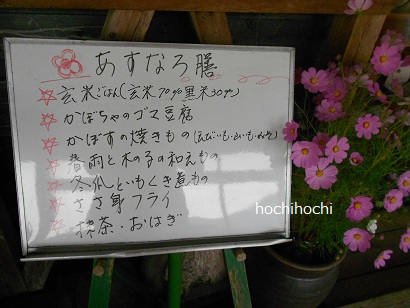 あすなろ膳
☆玄米ごはん(玄米70%黒米30%)
☆かぼちゃのゴマ豆腐
☆かぼすの焼きもの
☆春雨と木の子の和えもの
☆冬瓜といもくき煮もの
☆ささ身フライ
☆抹茶・おはぎ
hochihochi